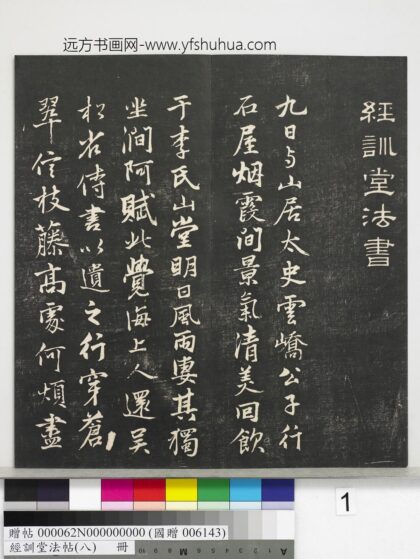 远方书画网-www.yfshuhua.com
經訓堂法書
九日与山居太史雲嶠公子行
石屋烟霞间景氣清美回飲
于李氏山堂明日風雨凄其獨
坐澗阿賦此覺海上人還吴
松省侍書以遺之行穿蒼
翠信枝藤高處何煩盡
1
贈帖 000062N000000000 (國贈 006143)
經訓堂法帖(八) 冊